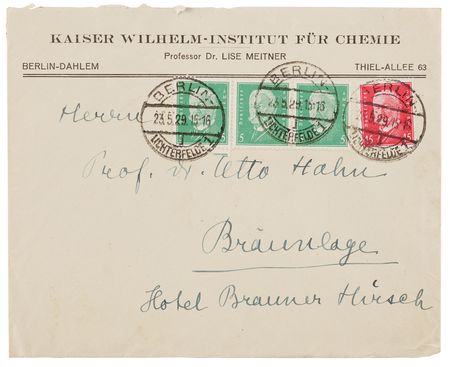 KAISER WILHELM-INSTITUT FÜR CHEMIE
Professor Dr. LISE MEITNER
BERLIN-DAHLEM
THIEL-ALLEE 63
BERLIN-
23.5.29.15-16
LICHTERFELDE 1
5
BERLIN-
23.5.29.15-16
LICHTERFELDE 1
5
5
BERLIN-
23.5.29.15-16
LICHTERFELDE 1
15
15
Herrn
Prof. Otto Hahn
Braunlage
Hotel Brauner Hirsch